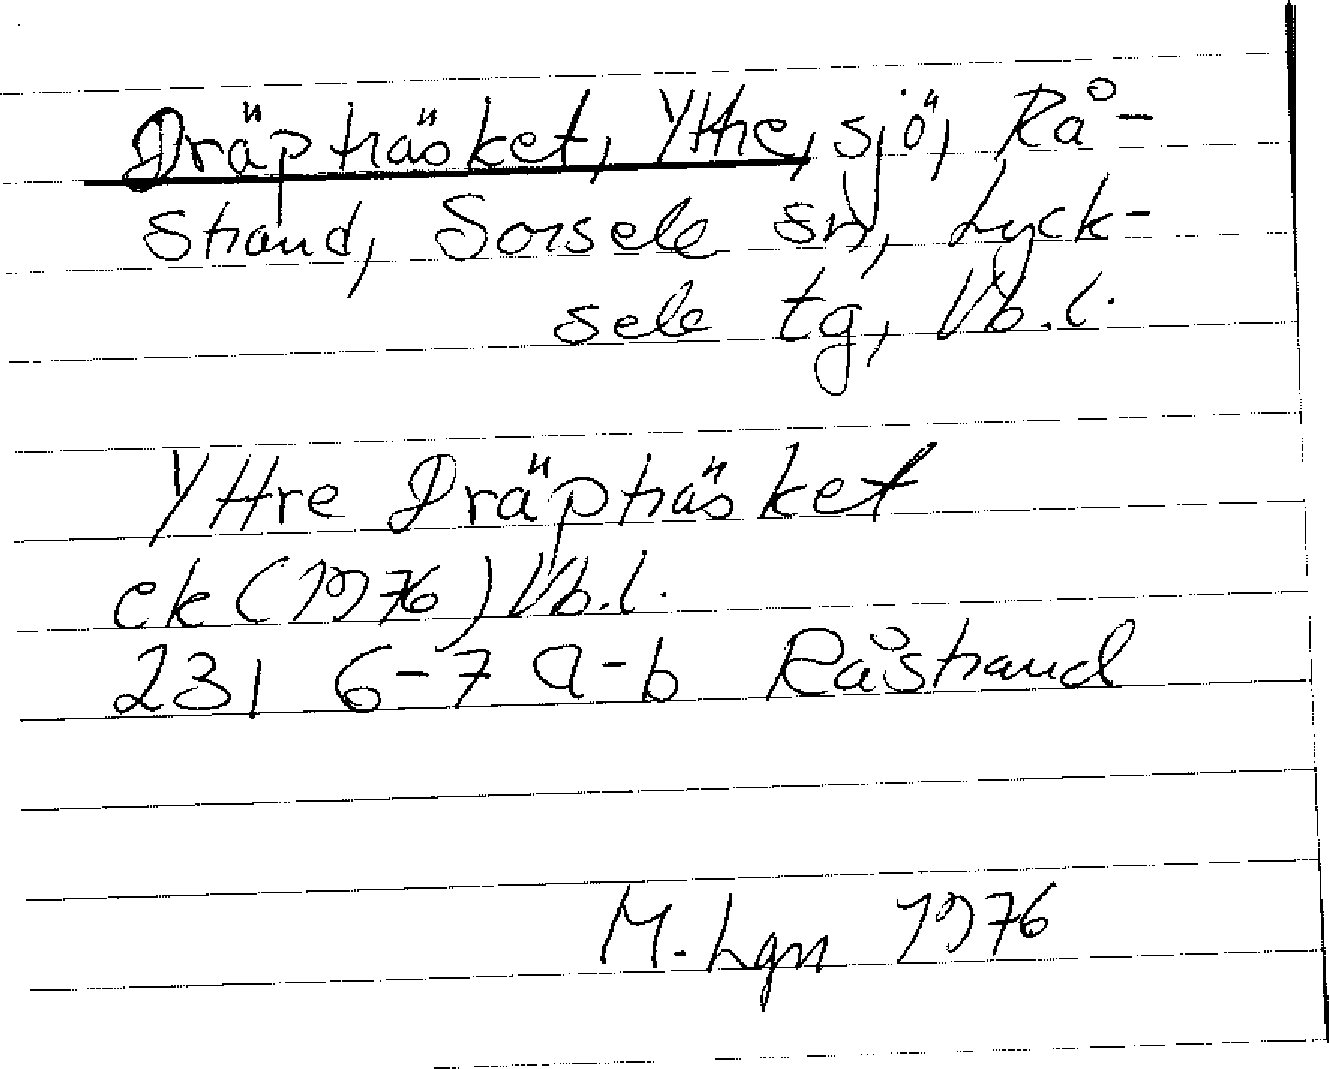 Dräpträsket, Yttre, sjö, Rå-
strand, Sorsele sn, Lyck-
sele tg, Vb.l.
Yttre Dräpträsket
ek (1976) Vb.l.
23I 6-7 a-b Råstrand
M. Lgn 1976